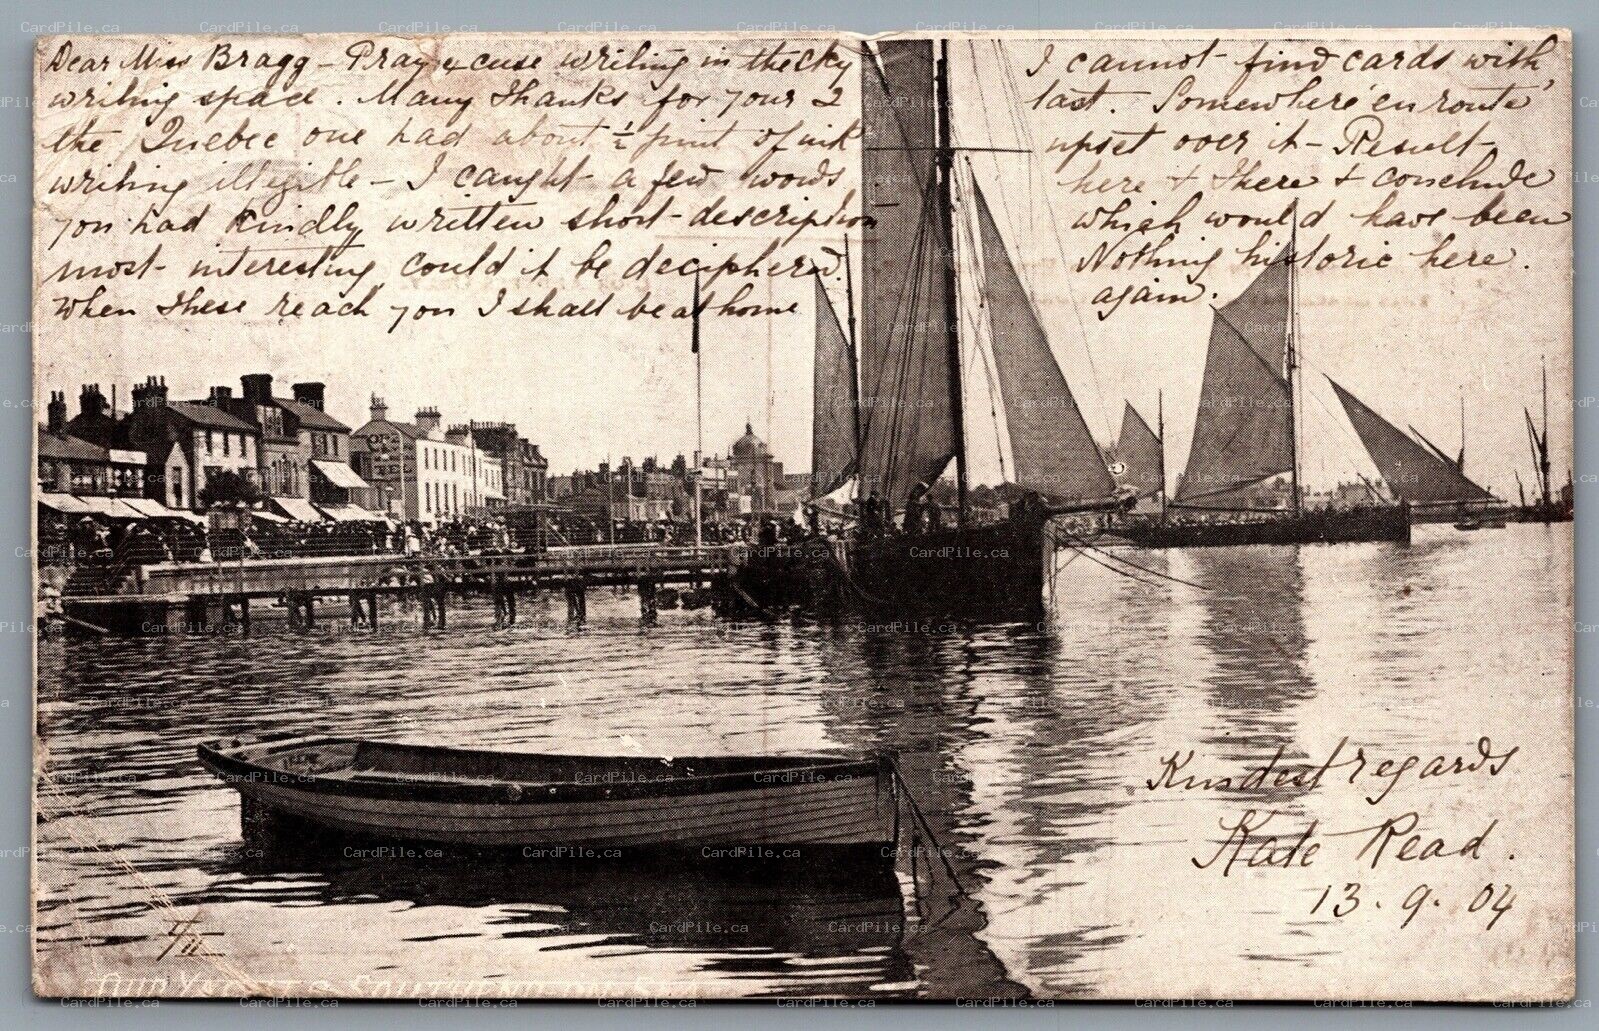 Dear Miss Bragg - Pray excuse writing in the sky I cannot find cards with
writing space. Many thanks for your 2 last. Somewhere 'en route'
the Quebec one had about ½ pint of ink upset over it - Result -
writing illegible - I caught a few words here + there + conclude
you had kindly written short description which would have been
most interesting could it be deciphered. Nothing historic here.
When these reach you I shall be at home again.
Kindest regards
Kate Read.
13.9.04
THE YACHTS SOUTHEND-ON-SEA
CardPile.ca